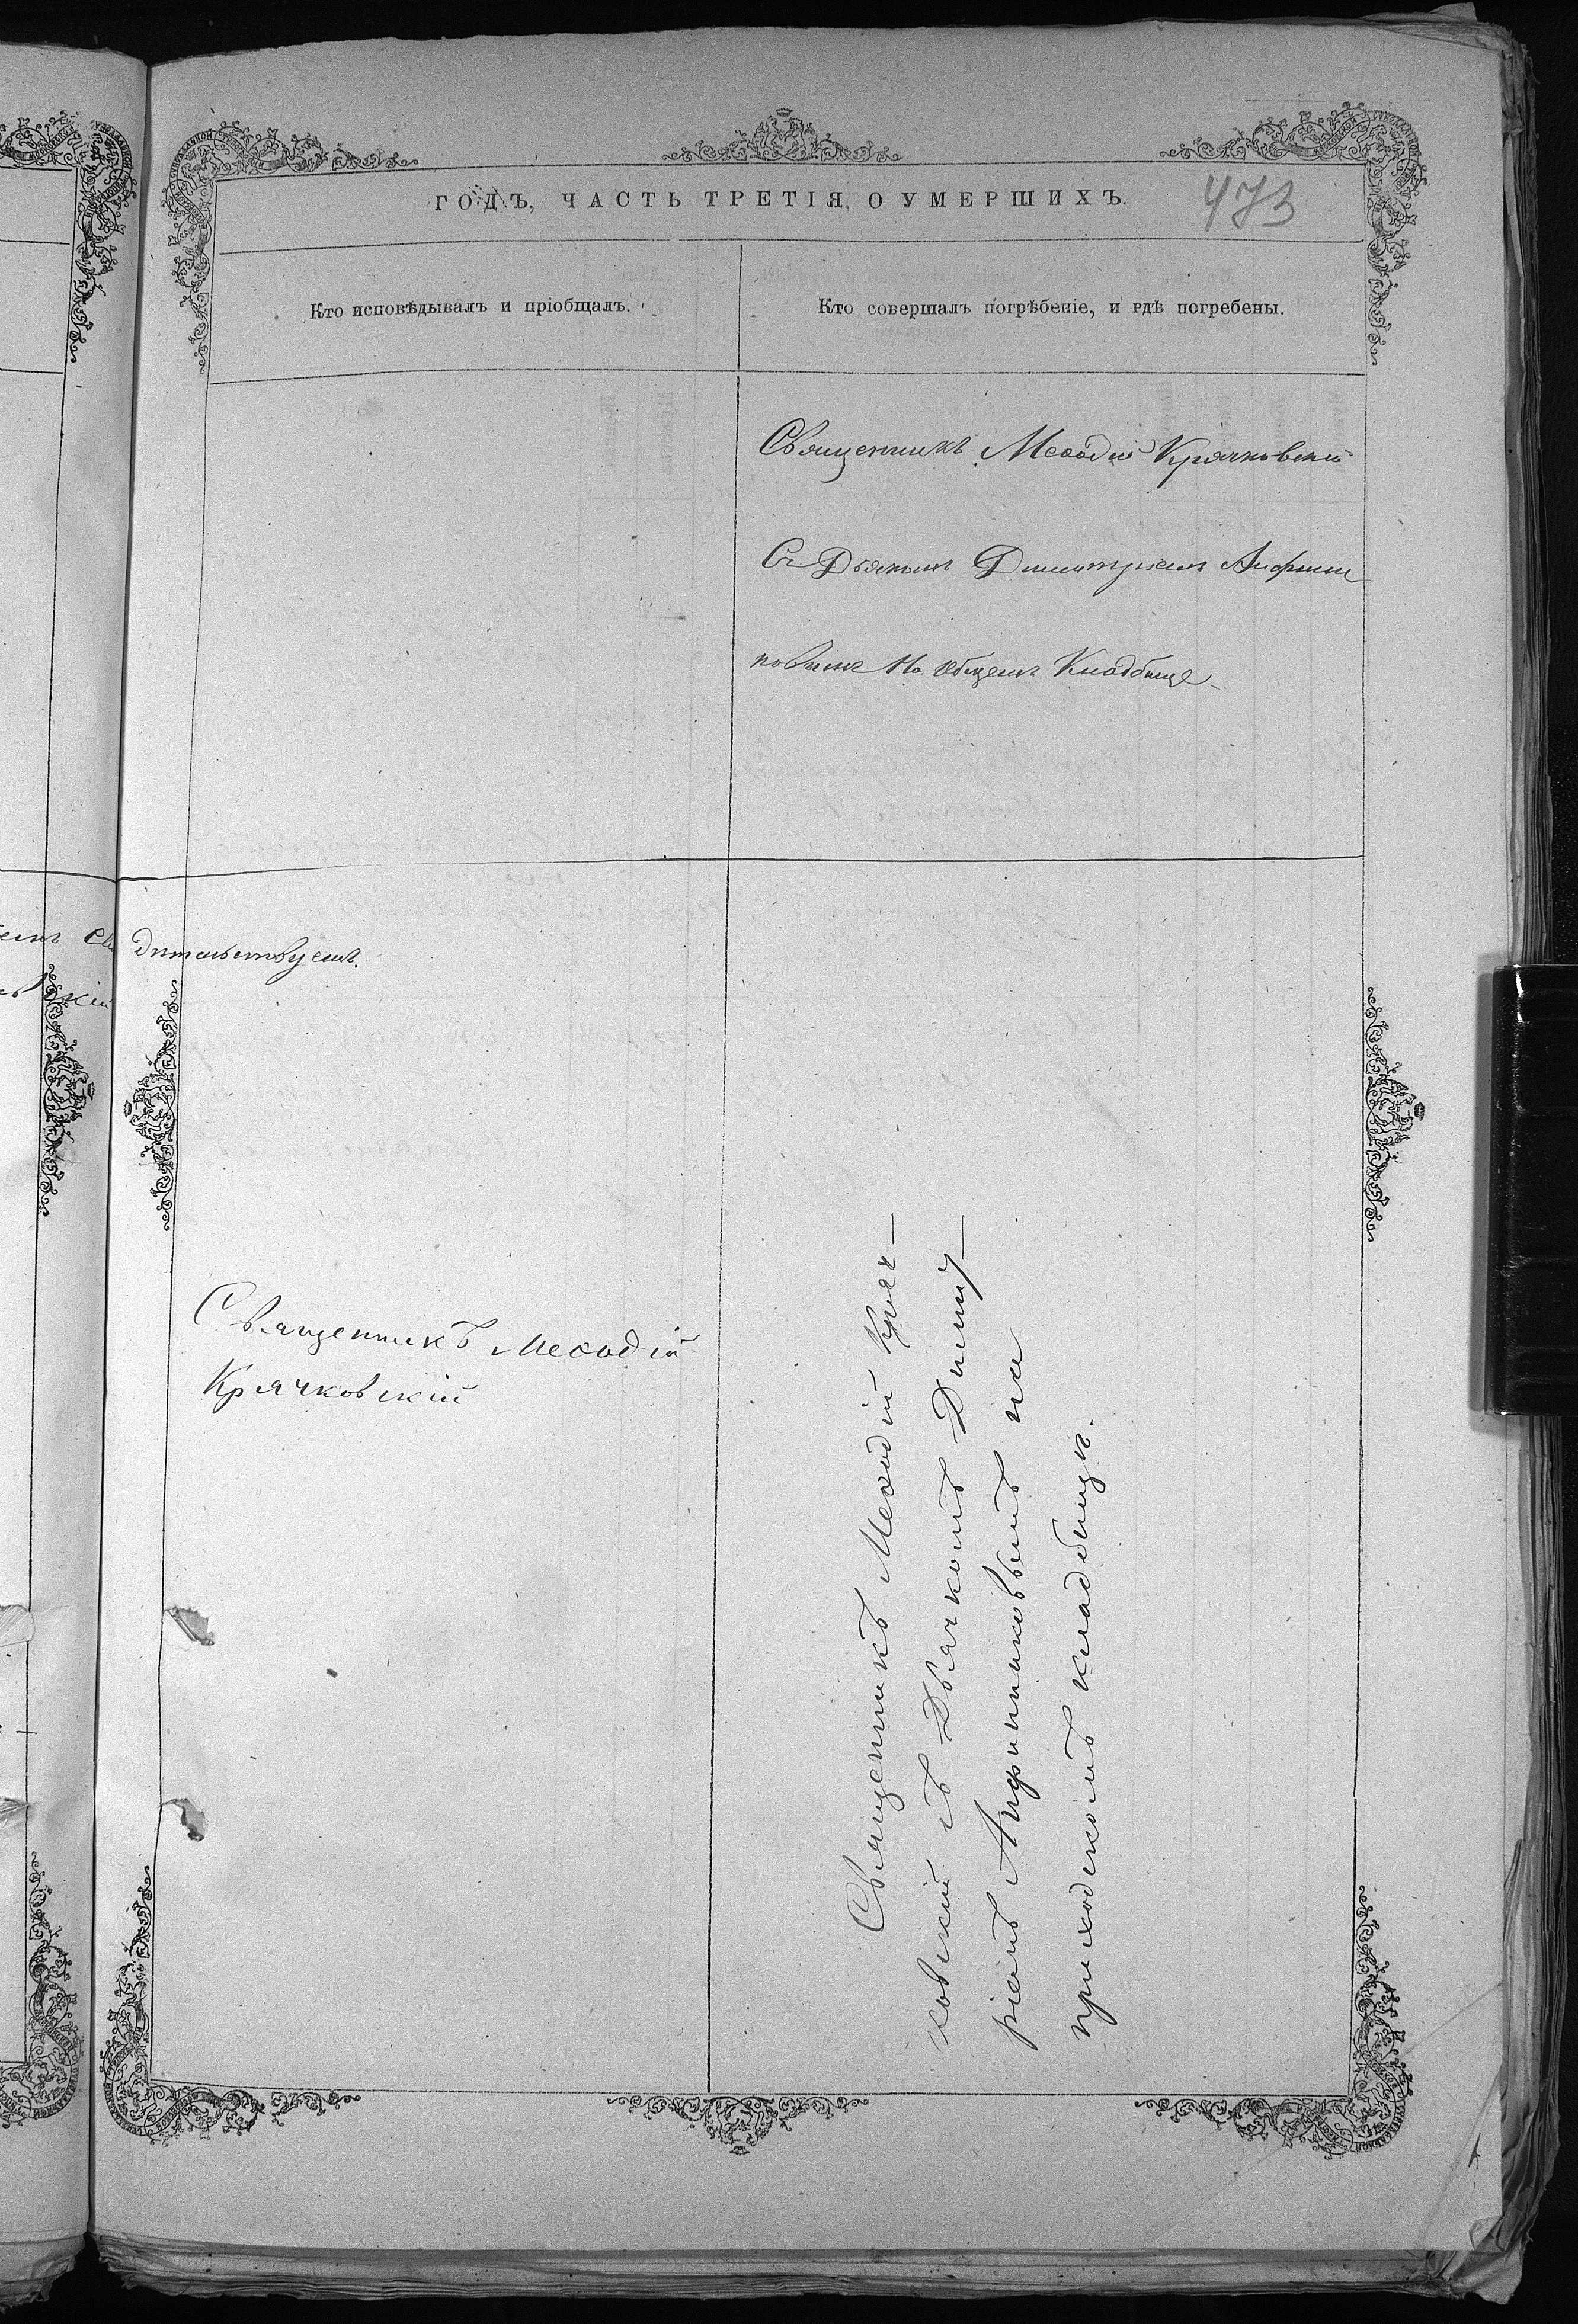 ГОДЪ, ЧАСТЬ ТРЕТІЯ, О УМЕРШИХЪ.
473
Кто исповѣдывалъ и пріобщалъ.
Кто совершалъ погрѣбеніе, и гдѣ погребены.
Священникъ Меѳодій Крячковскій
Съ Дьячкомъ Димитріемъ Анфини
ковымъ На общемъ Кладбище
дѣтельствуемъ.
Священникъ Меѳодій
Крячковскій
Священникъ Меѳодій Кряч-
ковскій съ Дьячкомъ Димит-
ріемъ Анфиниковымъ на
приходскомъ кладбищѣ.